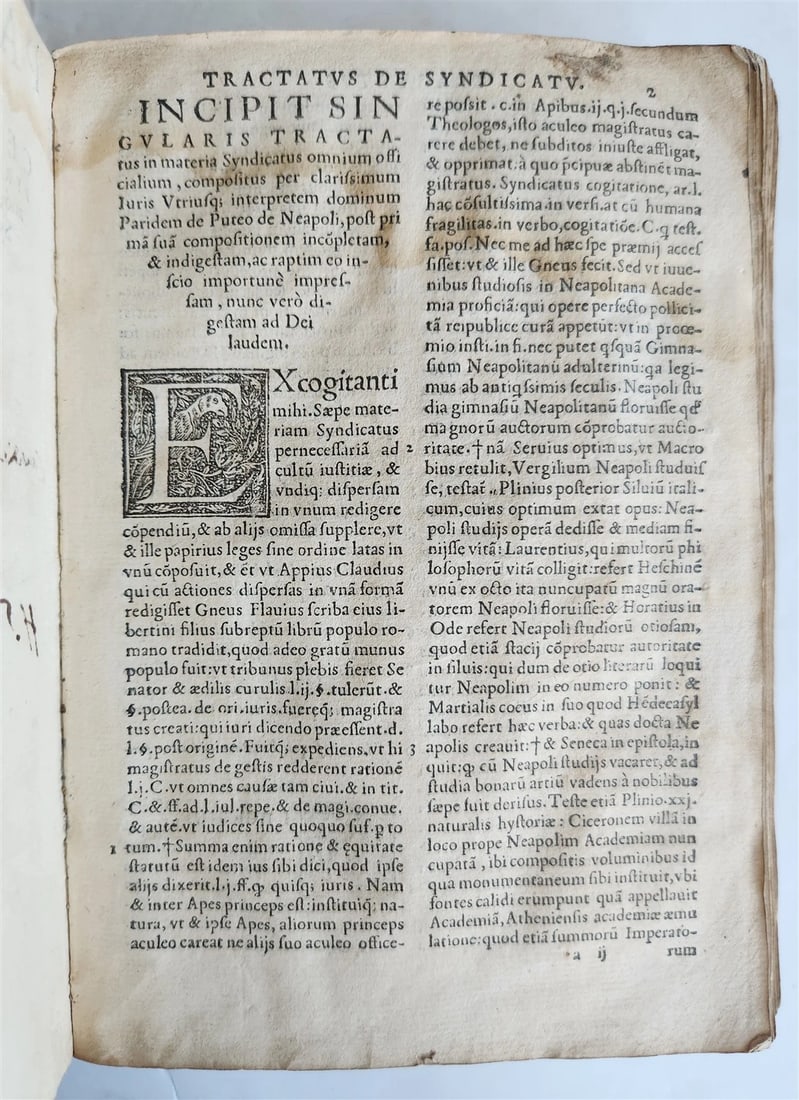 TRACTATVS DE SYNDICATV.
2
INCIPIT SIN
GVLARIS TRACTA-
tus in materia Syndicatus omnium offi
cialium, compoſitus per clariſsimum
Iuris Vtriuſq; interpretem dominum
Paridem de Puteo de Neapoli, poſt pri
mã ſuã compoſitionem incõpletam,
& indigeſtam, ac raptim eo in-
ſcio importunè impreſ-
ſam, nunc verò di-
geſtam ad Dei
laudem.
EXcogitanti
mihi. Sæpe mate-
riam Syndicatus
perneceſſariã ad
cultũ iuſtitiæ, &
vndiq; diſperſam
in vnum redigere
cõpendiũ, & ab alijs omiſſa ſupplere, vt
& ille papirius leges ſine ordine latas in
vnũ cõpoſuit, & ẽt vt Appius Claudius
qui cũ actiones diſperſas in vnã formã
redigiſſet Gneus Flauius ſcriba eius li-
bertini filius ſubreptũ librũ populo ro-
mano tradidit, quod adeo gratũ munus
populo fuit: vt tribunus plebis fieret Se
nator & ædilis curulis l.ij.§. tulerũt. &
§. poſtea. de ori. iuris. fuereq; magiſtra
tus creati: qui iuri dicendo præeſſent. d.
l.§. poſt originẽ. Fuitq; expediens, vt hi
magiſtratus de geſtis redderent rationẽ
l.j. C. vt omnes cauſæ tam ciui. & in tit.
C. & ff. ad. l. iul. repe. & de magi. conue.
& autẽ. vt iudices ſine quoquo ſuf. p to
1 tum. † Summa enim ratione & ęquitate
ſtatutũ eſt idem ius ſibi dici, quod ipſe
alijs dixerit. l.j. ff. ꝙ quiſq; iuris. Nam
& inter Apes princeps eſt: inſtituiq; na-
tura, vt & ipſe Apes, aliorum princeps
aculeo careat ne alijs ſuo aculeo office-
re poſsit. c. in Apibus. ij. q. j. ſecundum
Theologos, iſto aculeo magiſtratus ca-
rere debet, ne ſubditos iniuſte affligat,
& opprimat. à quo p̃cipuæ abſtinẽt ma-
giſtratus. Syndicatus cogitatione, ar. l.
hac cõſultiſsima. in verſi. at cũ humana
fragilitas. in verbo, cogitatiõe. C. q teſt.
fa. poſ. Nec me ad hæc ſpe præmij acceſ
ſiſſet: vt & ille Gneus fecit. Sed vt iuue-
nibus ſtudioſis in Neapolitana Acade-
mia proficiã: qui opere perfecto pollici-
tã reipublice curã appetũt: vt in proœ-
mio inſti. in fi. nec putet qſquã Gimna-
ſium Neapolitanũ adulterinũ: qa legi-
mus ab antiqſsimis ſeculis. Neapoli ſtu
dia gimnaſiũ Neapolitanũ floruiſſe qd
magnorũ auctorum cõprobatur aucto-
2 ritate. † nã Seruius optimus, vt Macro
bius retulit, Vergilium Neapoli ſtuduiſ
ſe, teſtat̃. Plinius poſterior Siluiũ itali-
cum, cuius optimum extat opus: Nea-
poli ſtudijs operã dediſſe & mediam fi-
nijſſe vitã: Laurentius, qui multorũ phi
loſophorũ vitã colligit: refert Heſchinẽ
vnũ ex octo ita nuncupatũ magnũ ora-
torem Neapoli floruiſſe: & Horatius in
Ode refert Neapoli ſtudiorũ otioſam,
quod etiã ſtacij cõprobatur autoritate
in ſiluis: qui dum de otio literarũ loqui
tur Neapolim in eo numero ponit: &
Martialis cocus in ſuo quod Hẽdecaſyl
labo refert hæc verba: & quas docta Ne
3 apolis creauit: † & Seneca in epiſtola, in
quit: ꝙ cũ Neapoli ſtudijs vacaret, & ad
ſtudia bonarũ artiũ vadens à nobilibus
ſæpe fuit deriſus. Teſte etiã Plinio. xxj.
naturalis hyſtoriæ: Ciceronem villã in
loco prope Neapolim Academiam nun
cupatã, ibi compoſitis voluminibus id
qua monumentaneum ſibi inſtituit, vbi
fontes calidi erumpunt quã appellauit
Academiã, Athenienſis academiæ æmu
latione: quod etiã ſummorũ Imperato-
a ij rum